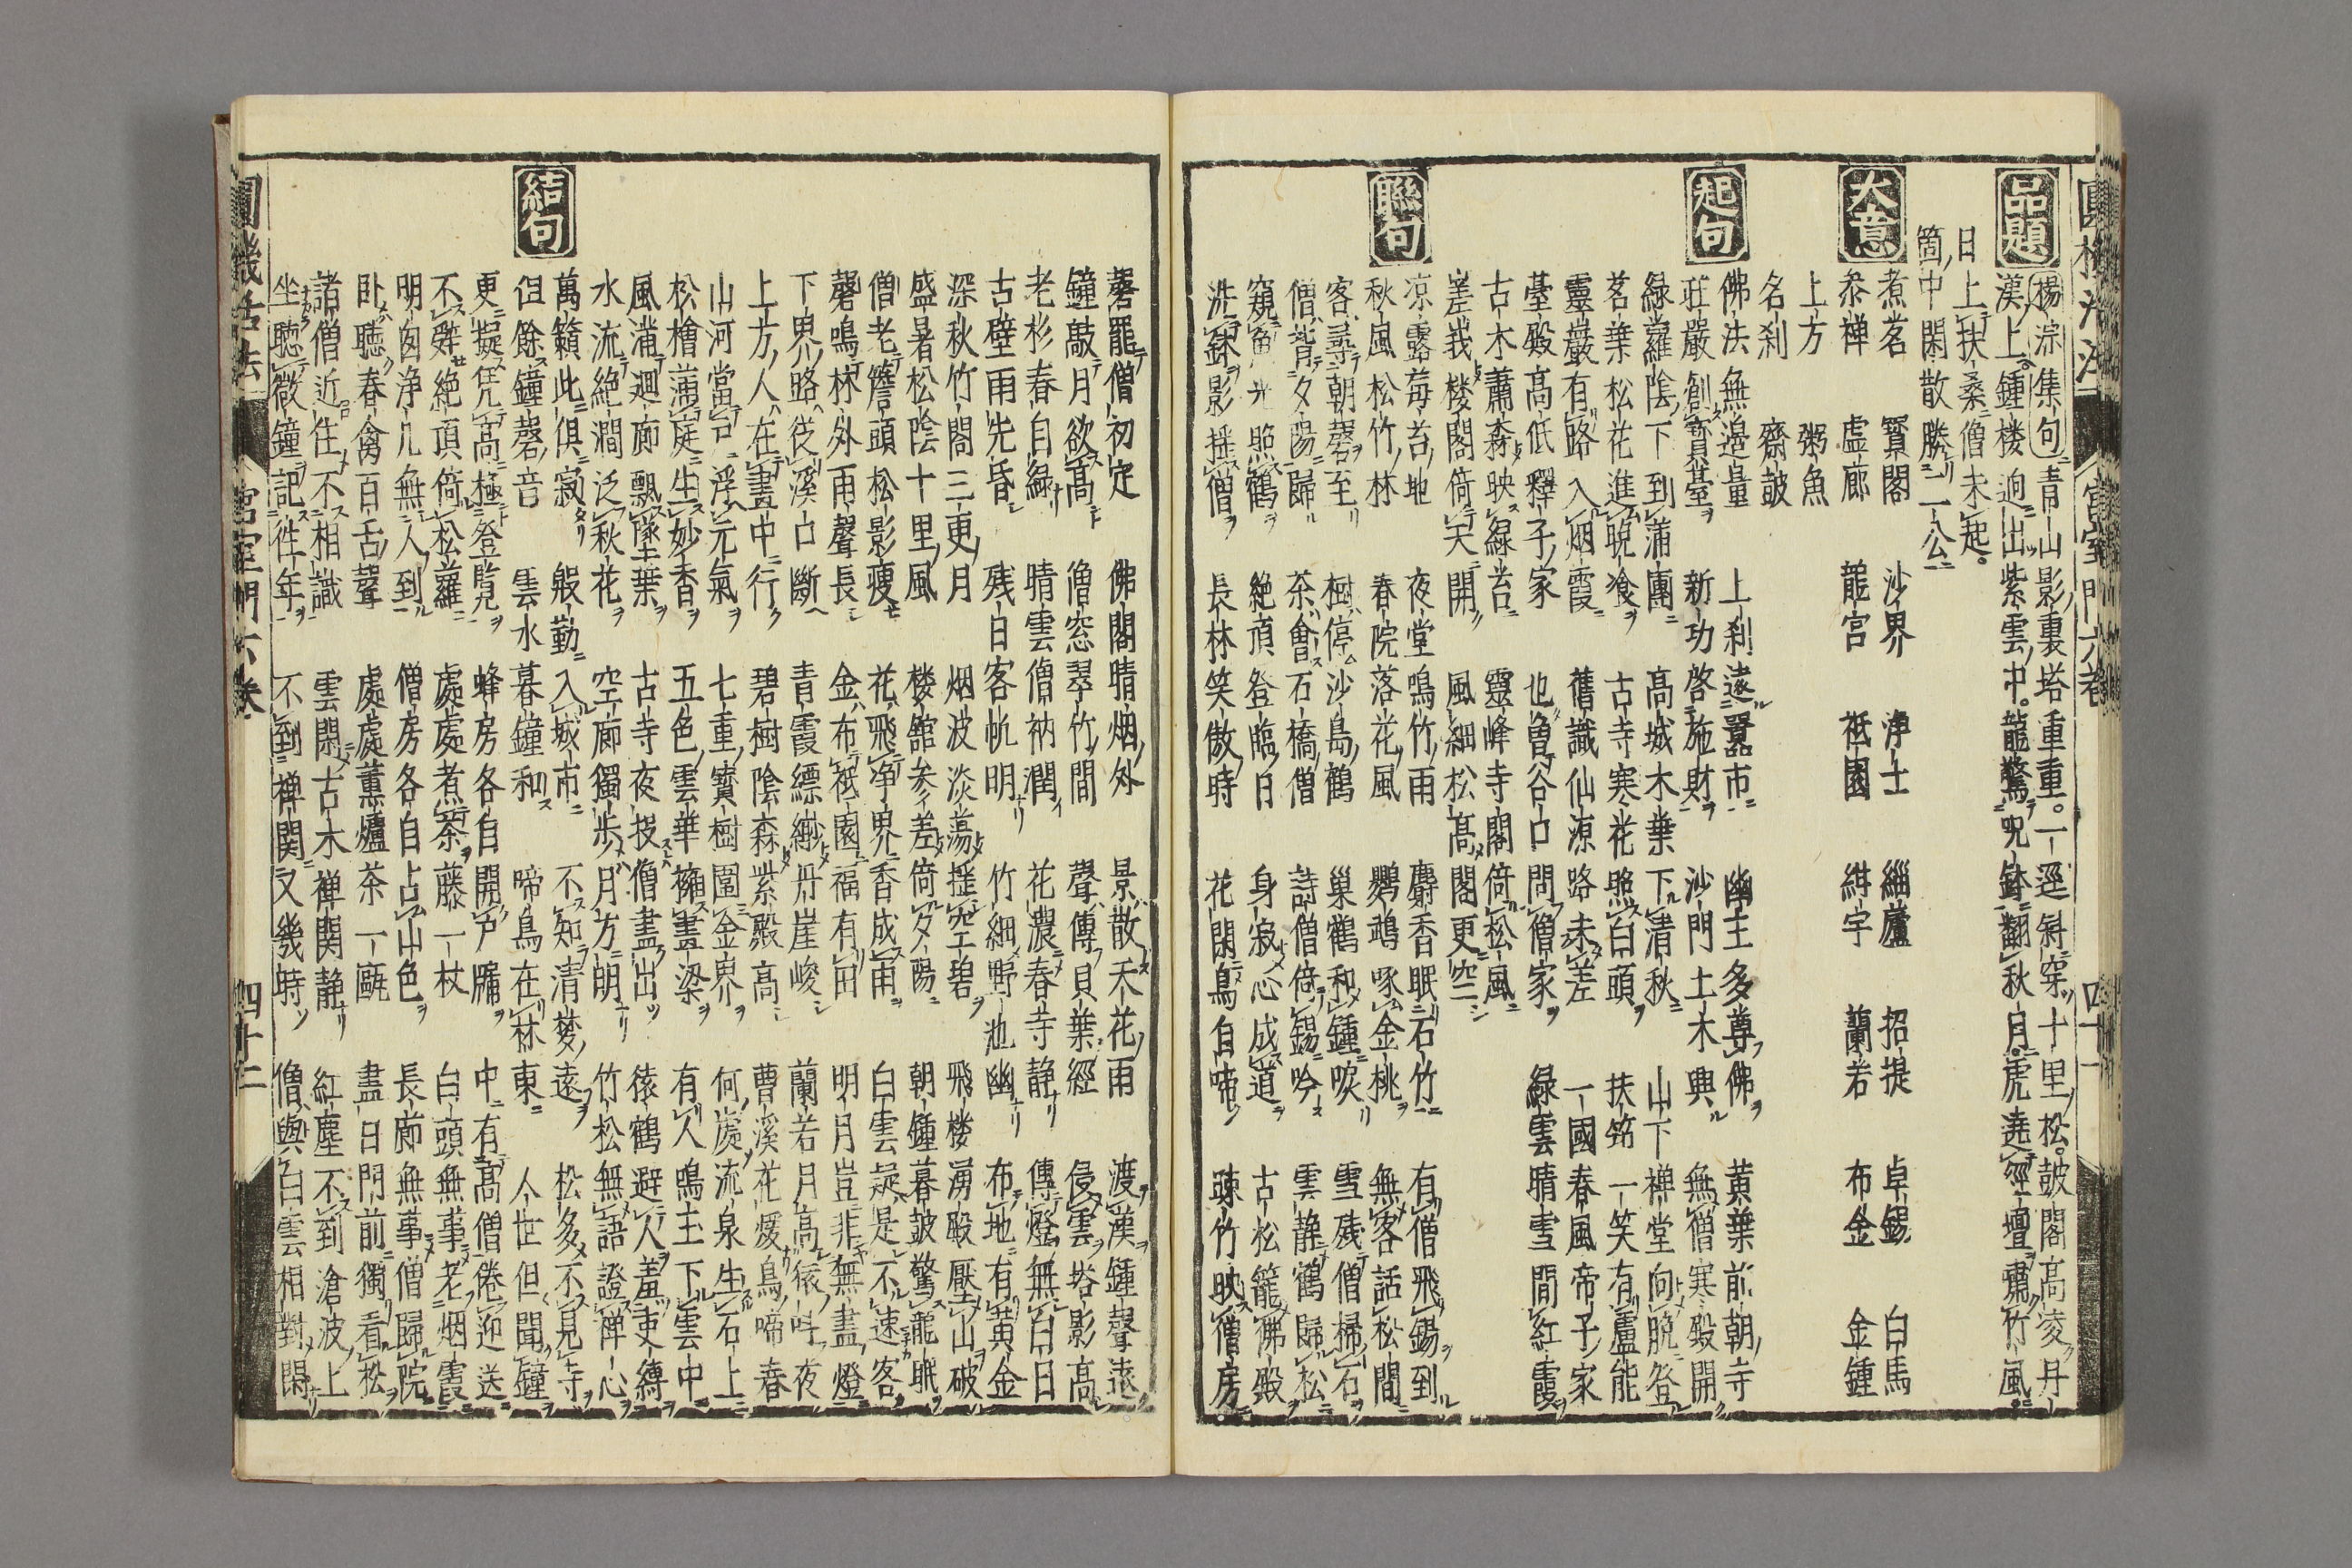 品題
楊淙集句青山影裏塔重重。一逕斜穿十里松。皷閣高凌丹
漢上鍾楼迥出紫雲中。龍驚呪鉢翻秋月。虎遶經壇嘯竹風。
日上扶桑僧未起。
箇中閑散勝二公
大意
煮茗 寳閣 沙界 浄土 緇廬 招提 卓錫 白馬
叅禅 虚廊 龍宮 祗園 紺宇 蘭若 布金 金鍾
上方 粥魚
名刹 齋皷
起句
佛法無邊量 上刹遠囂市 幽主多尊佛 黄葉前朝寺
莊嚴創寳臺 新功啓施財 沙門土木興 無僧寒殿開
緑蘿陰下到蒲團 高城木葉下清秋 山下禅堂向晩登
茗葉松花進晩飡 古寺寒花照白頭 扶筇一笑有廬能
靈巖有路入烟霞 舊識仙源路未差 一國春風帝子家
臺殿高低釋子家 也魯谷口問僧家 緑雲晴雪間紅霞
古木蕭森映緑苔 靈峰寺閣倚松風
峩楼閣倚天開 風細松高閣更空
聯句
凉露莓苔地 夜堂鳴竹雨 麝香眠石竹 有僧飛錫到
秋風松竹林 春院落花風 鸚鵡啄金桃 無客話松間
客尋朝磬至 樹停沙島鶴 巢鶴和鍾唳 雪残僧掃石
僧背夕陽歸 茶會石橋僧 詩僧倚錫吟 雲静鶴歸松
窺 光照鶴 絶頂登臨日 身寂心成道 古松籠佛殿
洗鉢影揺僧 長林笑傲時 花閑鳥自啼 疎竹映僧房
磬罷僧初定 佛閣晴烟外 景散禾花雨 渡漢鍾聲遠
鐘敲月欲高 僧窓翠竹間 聲傳貝葉經 侵雲塔影高
老杉春自緑 晴雲僧衲潤 花濃春寺静 傳燈無白日
古壁雨先昏 残日客帆明 竹細野池幽 布地有黄金
深秋竹閣三更月 烟波淡蕩揺空碧 飛楼湧殿壓山破
盛暑松陰十里風 楼舘参差倚夕陽 朝鍾暮皷驚龍眠
僧老簷頭松影瘦 花飛浄界香成雨 白雲疑是不速客
磬鳴林外雨聲長 金布祗園福有田 明月豈非無盡燈
下界路従溪口斷 青霞縹緲丹崖峻 蘭若月高猿呌夜
上方人在畫中行 碧樹陰森紫殿高 曹溪花煖鳥啼春
山河當戸浮元氣 七重寳樹圍金界 何處流泉生石上
松檜蒲庭生妙香 五色雲華擁畫梁 有人鳴主下雲中
風滿迴廊飄墜葉 古寺夜投僧盡出 猿鶴避人羞吏縛
水流絶澗泛秋花 空廊獨歩月方明 竹松無語證禅心
結句
萬籟此俱寂 殷勤入城市 不知清梵遠 松多不見寺
但餘鐘磬音 雲水暮鐘和 啼鳥在林東 人世但聞鐘
更擬凭高極登覽 蜂房各自開戸牖 中有高僧倦迎送
不辭絶頂倚松蘿 處處煮茶藤一杖 白頭無事老烟霞
明囱浄几無人到 僧房各自占山色 長廊無事僧歸院
卧聴春禽百舌聲 處處薫爐茶一甌 盡日門前獨看松
諸僧近住不相識 雲閑古木禅関静 紅塵不到滄波上
坐聴微鐘記徃年 不到禅関又幾時 僧與白雲相對閑
圓機活法 宮室門六巻 四十一
圓機活法 宮室門六巻 四十二